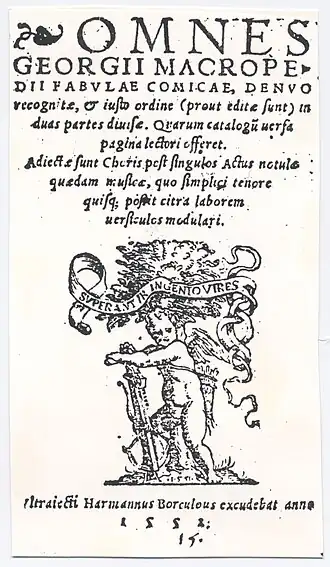 OMNES
GEORGII MACROPE⸗
DII FABVLAE COMICAE, DENVO
recognitæ, & iusto ordine (prout editæ sunt) in
duas partes diuisæ. Quarum catalogũ uersa
pagina lectori offeret.
Adiectæ sunt Choris post singulos Actus notulæ
quædam musicæ, quo simplici tenore
quisq; possit citra laborem
uersiculos modulari.
SVPERAVIT INGENIO VIRES
Vltraiecti Harmannus Borculous excudebat anno
1552;
15.